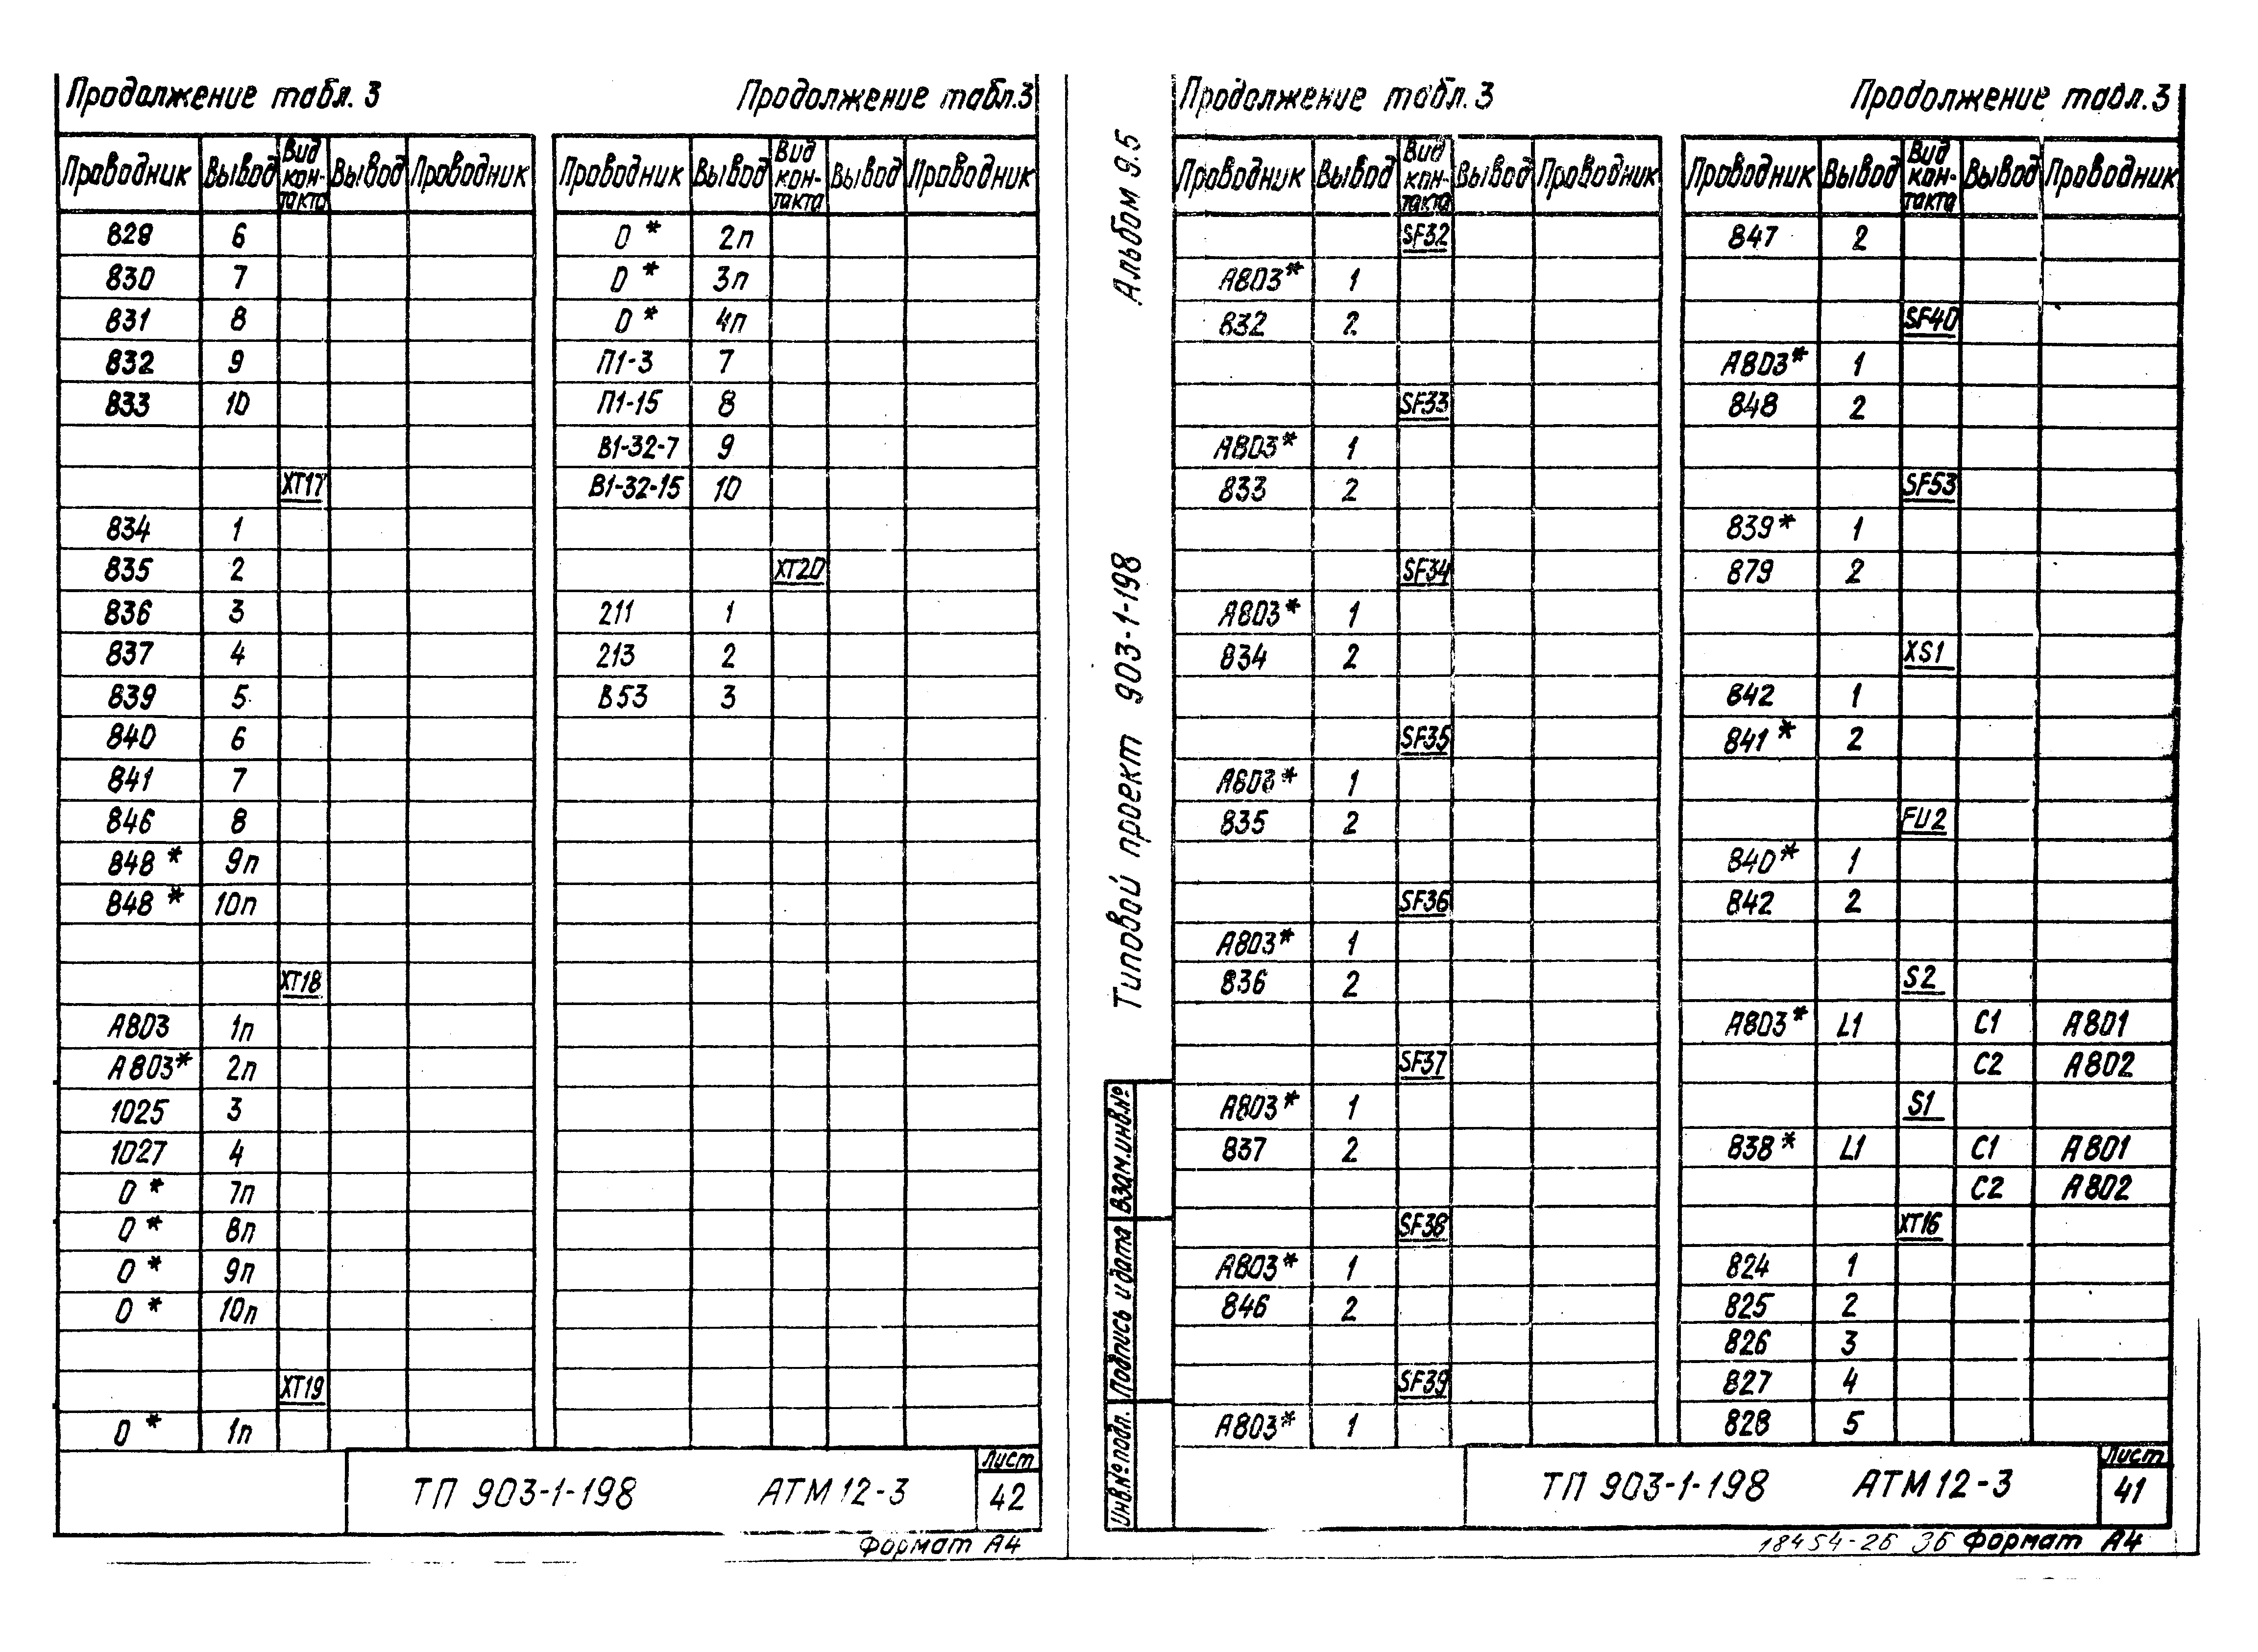 Продолжение табл. 3
Проводник Вывод Вид кон- такта Вывод Проводник
829 6
830 7
831 8
832 9
833 10
XT17
834 1
835 2
836 3
837 4
839 5
840 6
841 7
846 8
848 * 9п
848 * 10п
XT18
А803 1п
А803* 2п
1025 3
1027 4
0 * 7п
0 * 8п
0 * 9п
0 * 10п
XT19
0 * 1п
Продолжение табл.3
Проводник Вывод Вид кон- такта Вывод Проводник
0 * 2п
0 * 3п
0 * 4п
П1-3 7
П1-15 8
В1-32-7 9
В1-32-15 10
XT20
211 1
213 2
В53 3
ТП 903-1-198 АТМ12-3
Лист
42
Формат А4
Альбом 9.5
Типовой проект 903-1-198
Взам.инв.№
Подпись и дата
Инв.№ подл.
Продолжение табл. 3
Проводник Вывод Вид кон- такта Вывод Проводник
SF32
А803* 1
832 2
SF33
А803* 1
833 2
SF34
А803* 1
834 2
SF35
А803* 1
835 2
SF36
А803* 1
836 2
SF37
А803* 1
837 2
SF38
А803* 1
846 2
SF39
А803* 1
Продолжение табл.3
Проводник Вывод Вид кон- такта Вывод Проводник
847 2
SF40
А803* 1
848 2
SF53
839* 1
879 2
XS1
842 1
841* 2
FU2
840* 1
842 2
S2
А803* L1 C1 А801
C2 А802
S1
838* L1 C1 А801
C2 А802
XT16
824 1
825 2
826 3
827 4
828 5
ТП 903-1-198 АТМ12-3
Лист
41
18454-26 36 Формат А4